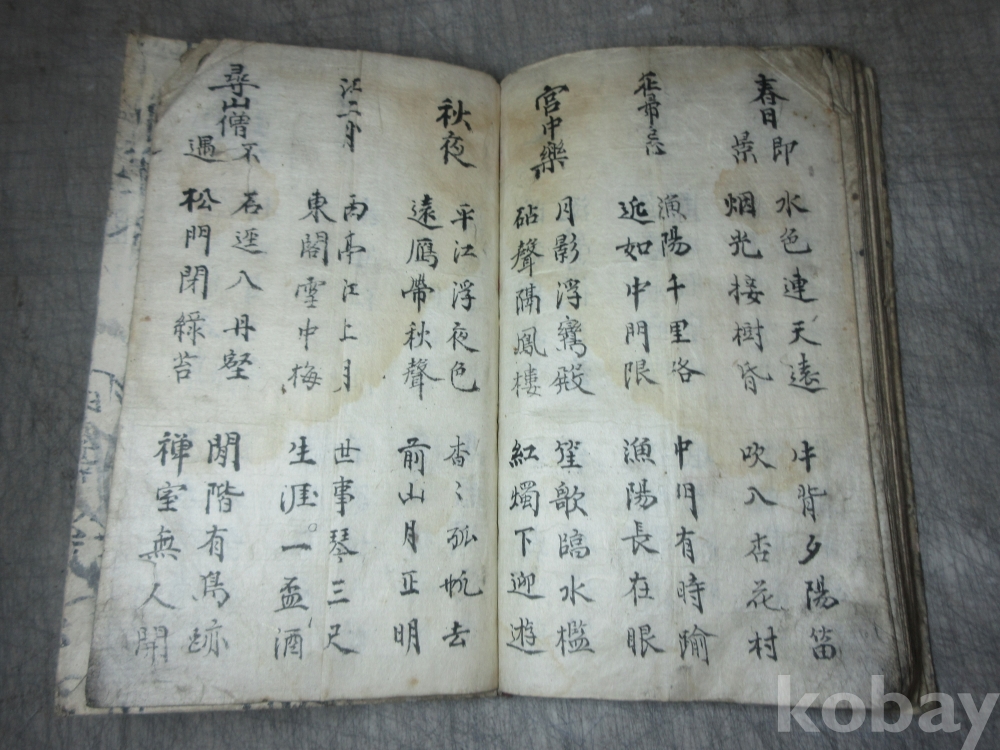 春日即景
水色連天遠
烟光接樹昏
牛背夕陽笛
吹入杏花村
征婦怨
漁陽千里路
近如中門限
中門有時踰
漁陽長在眼
宮中樂
月影浮鸞殿
砧聲隔鳳樓
笙歌臨水檻
紅燭下迎遊
秋夜
平江浮夜色
遠鴈帶秋聲
杳〻孤帆去
前山月正明
江上月
西亭江上月
東閣雪中梅
世事琴三尺
生涯一盃酒
尋山僧不遇
石逕入丹壑
松門閉綠苔
閒階有鳥跡
禅室無人開
kobay